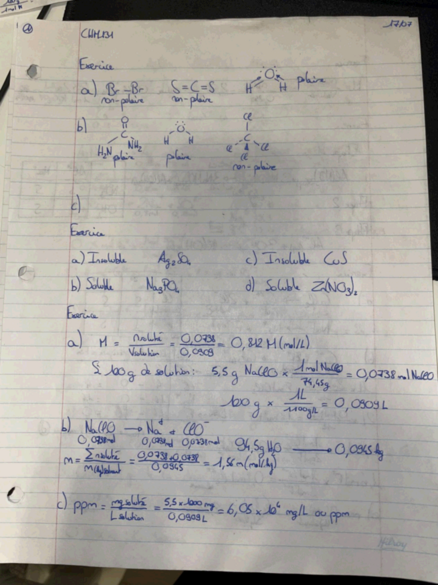 CHM131
17/07
Exercice
a) Br-Br S=C=S H O H polaire
non-polaire non-polaire
b) O C H2N NH2 O H H Cl C Cl Cl Cl
polaire polaire non-polaire
c)
Exercice
a) Insoluble c) Insoluble CuS
b) Soluble d) Soluble
Exercice
a) M = nsoluté / Vsolution = 0,0738 / 0,0909 = 0,812 M (mol/L)
100g de solution: 5,5 g NaClO × 1 mol NaClO / 74,45g = 0,0738 mol NaClO
100 g × 1L / 1100g/L = 0,0909L
b) NaClO → Na+ + ClO-
0,0738mol 0,0738mol 0,0738mol 94,5g H2O → 0,0945 kg
m = Σ nsoluté / = 0,0738+0,0738 / 0,0945 = 1,56 m (mol/kg)
c) ppm = mg soluté / L solution = 5,5 × 1000 mg / 0,0909L = 6,05 × 10 mg/L ou ppm